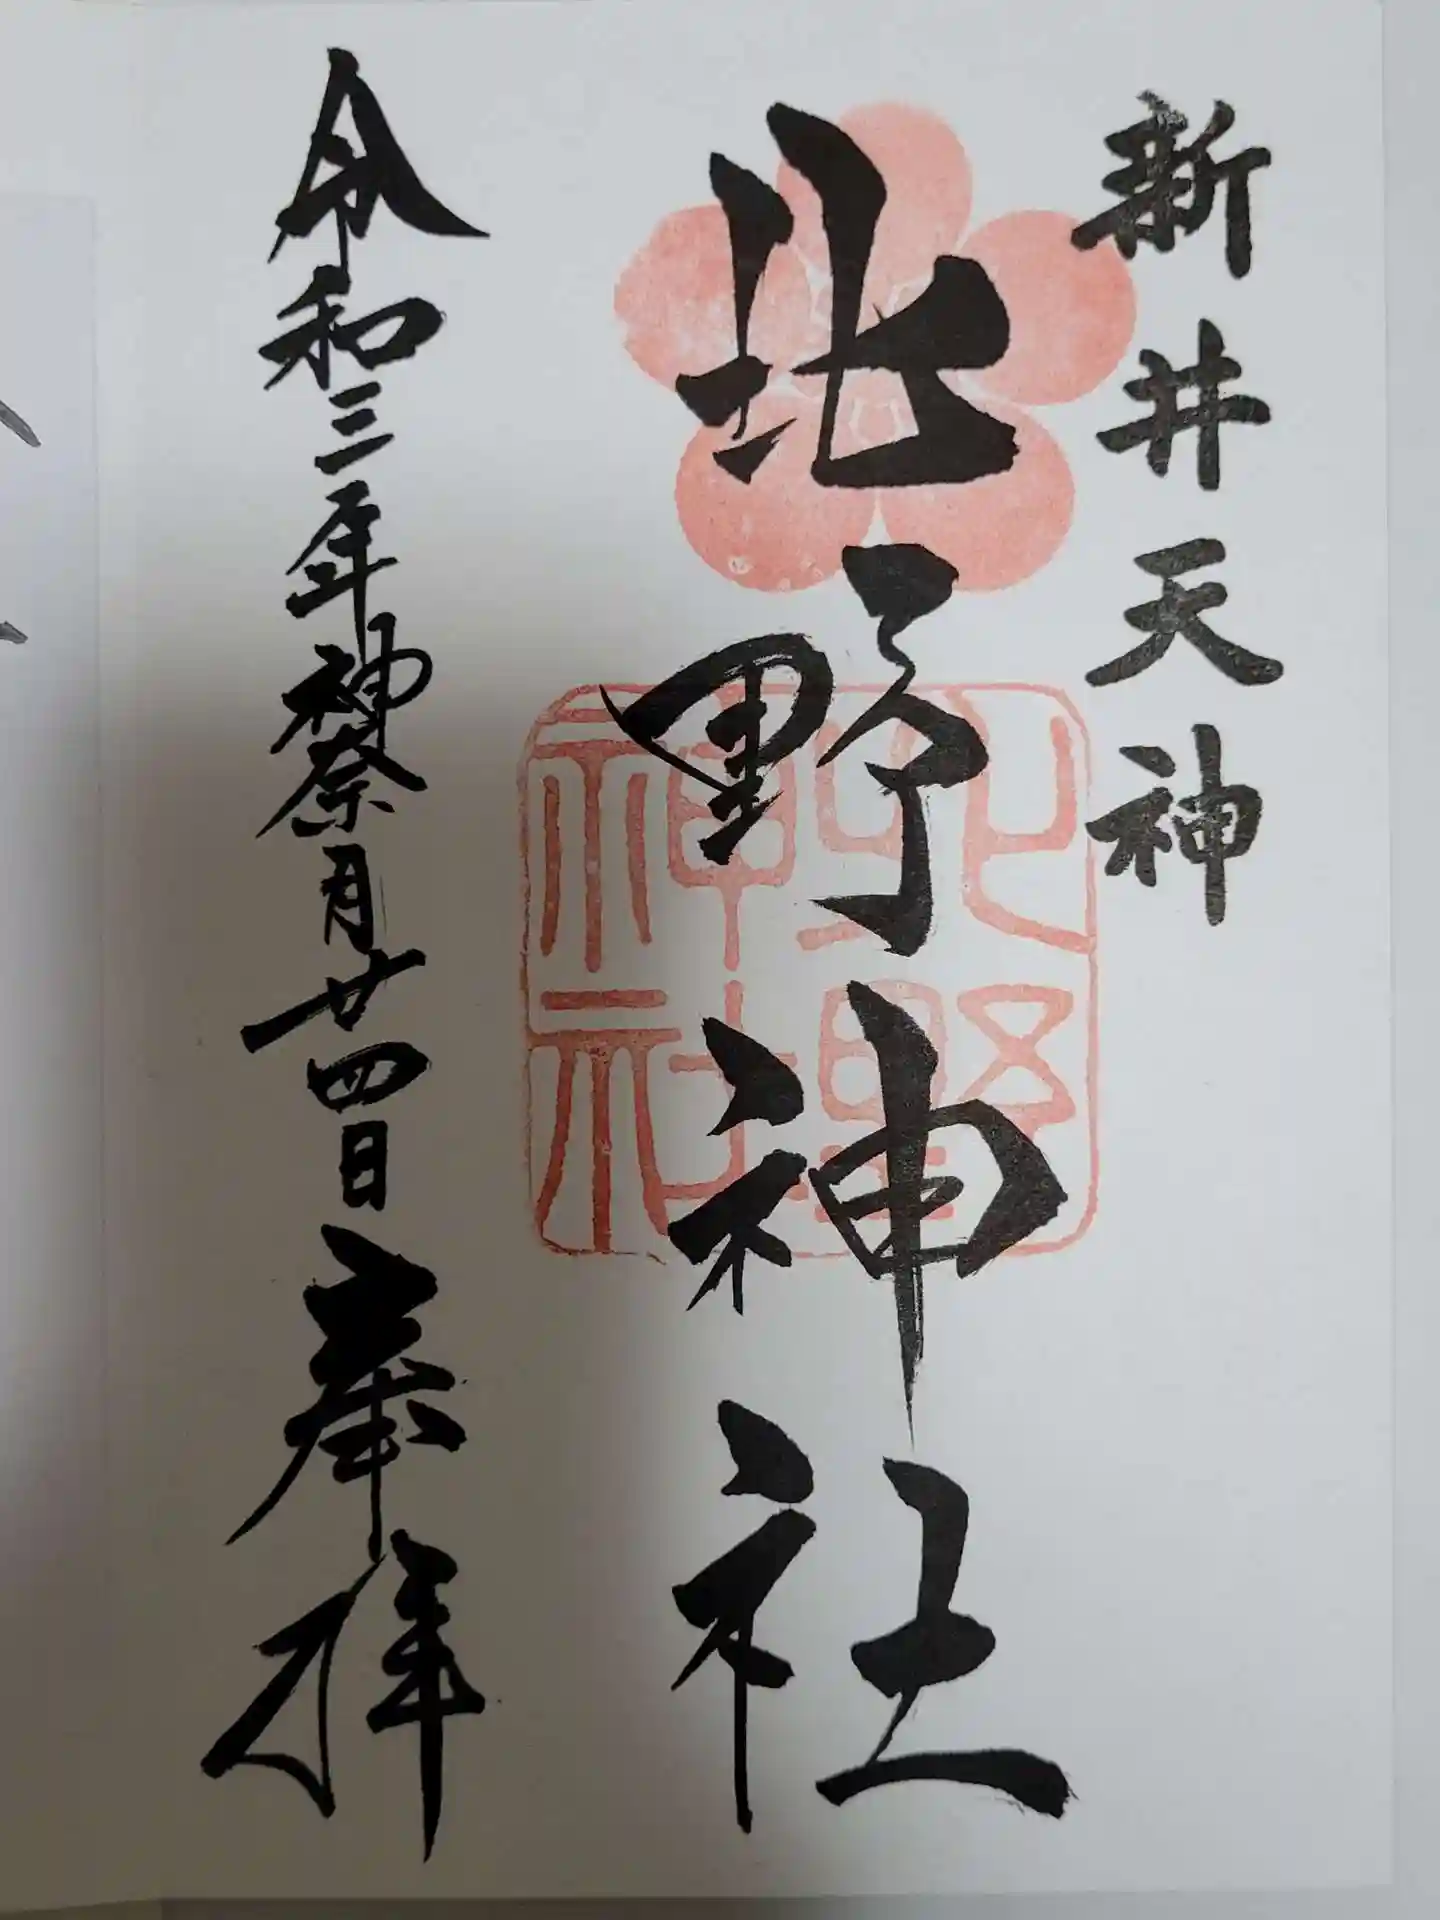 新井天神
北野神社
北野神社
令和三年神祭月廿四日奉拝